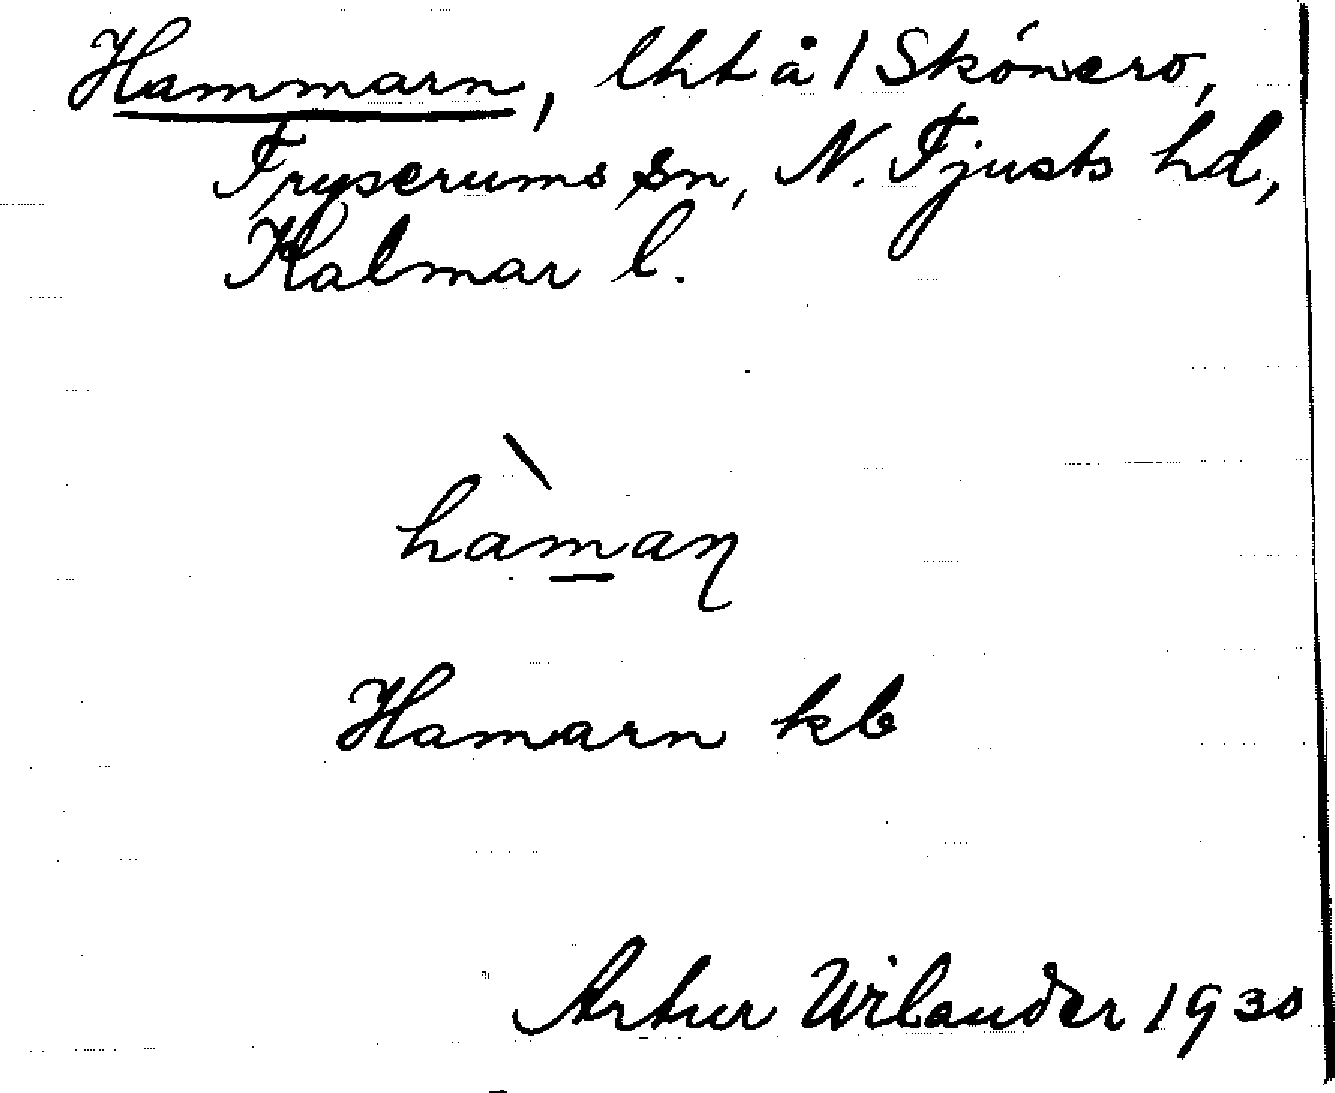 Hammarn, lht å 1 Skönero,
Fryserums sn, N. Tjusts hd,
Kalmar l.
hàmaɳ
Hamarn kb
Artur Wilander 1930